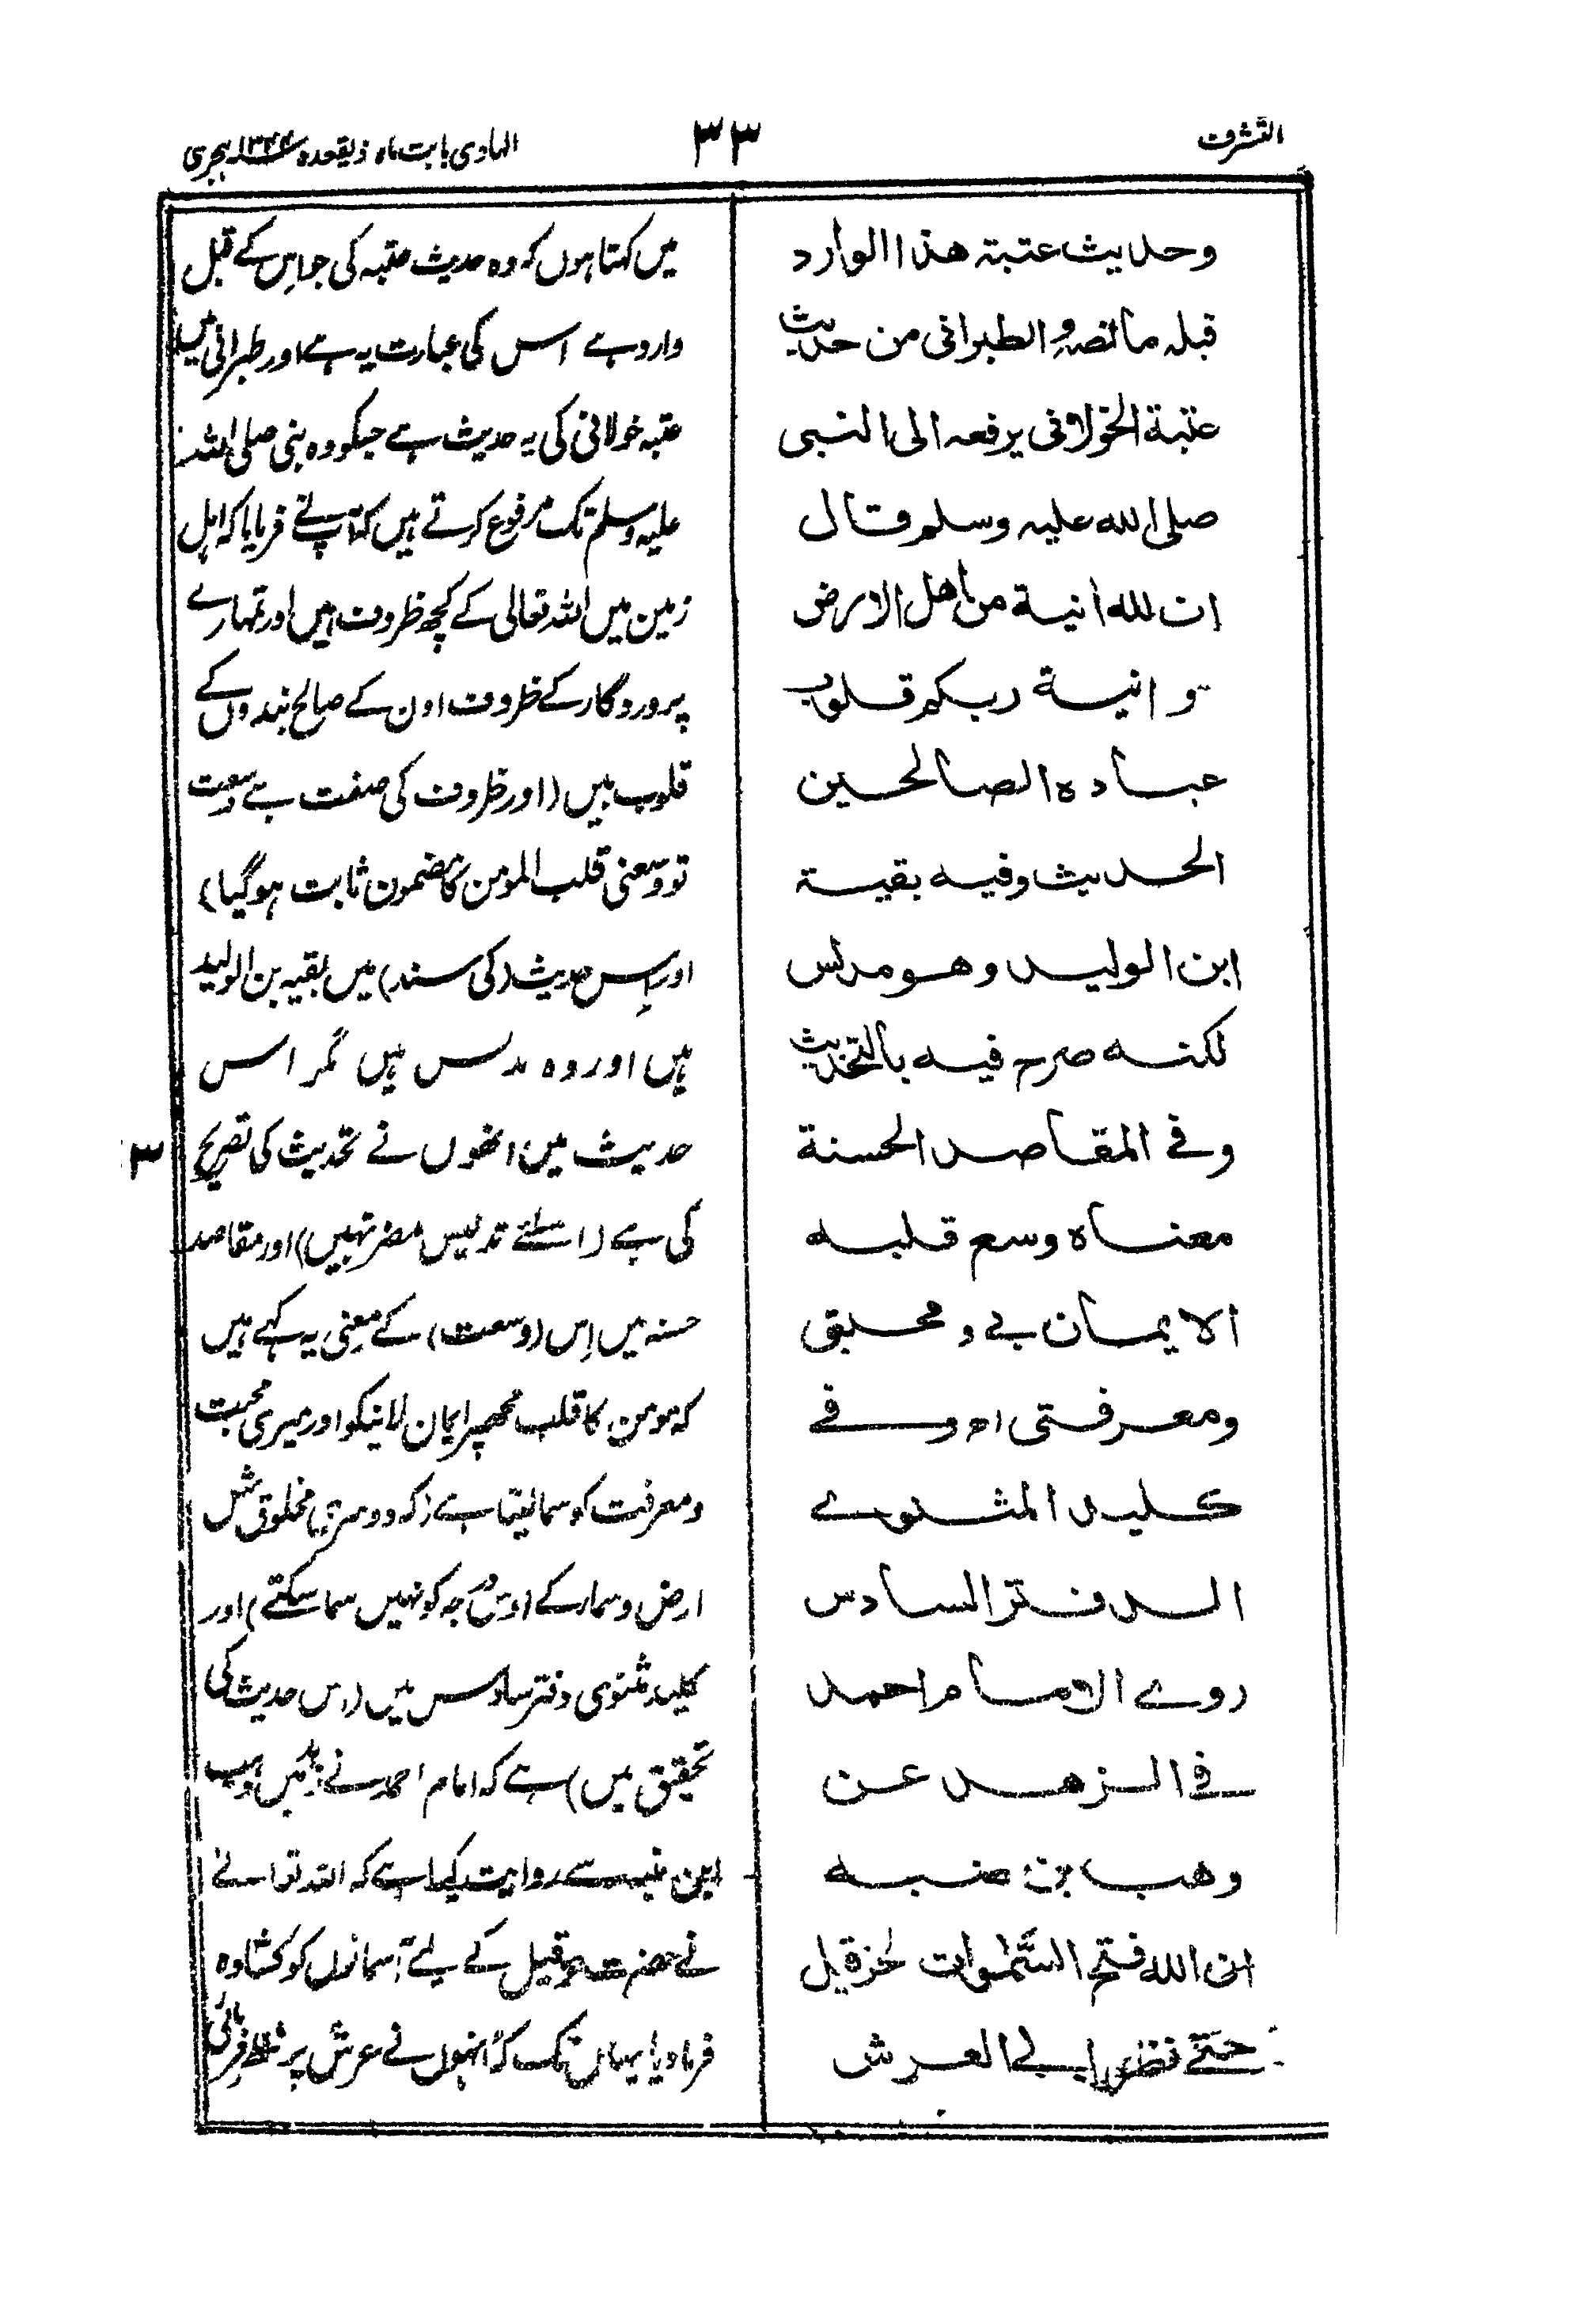 التشرف
٣٣
الہادی بابت ماہ ذیقعدہ ۱۳۴۴ ہجری
وحدیث عتبۃ ھذا الوارد
قبلہ ما نصہ و الطبرانی من حدیث
عتبۃ الخولانی یرفعہ الی النبی
صلی اللہ علیہ وسلم قال
ان للہ انیۃ من اھل الارض
و انیۃ ربکم قلوب
عبادہ الصالحین
الحدیث وفیہ بقیۃ
ابن الولید وھو مدلس
لکنہ صرح فیہ بالتحدیث
وفی المقاصد الحسنۃ
معناہ وسع قلبہ
الایمان بی و محبتی
ومعرفتی اھ وفی
کلید المثنوی
الدفتر السادس
روی الامام احمد
فی الزھد عن
وھب بن منبہ
ان اللہ فتح السّمٰوات لحزقیل
حتّٰی نظر الی العرش
میں کہتا ہوں کہ وہ حدیث عتبہ کی جو اس کے قبل
وارد ہے اس کی عبارت یہ ہے اور طبرانی میں
عتبہ خولانی کی یہ حدیث ہے جسکو وہ نبی صلی اللہ
علیہ وسلم تک مرفوع کرتے ہیں کہ آپ نے فرمایا کہ اہل
زمین میں اللہ تعالی کے کچھ ظروف ہیں اور تمہارے
پروردگار کے ظروف اون کے صالح بندوں کے
قلوب ہیں (اور ظروف کی صفت ہے وسعت
تو وسعنی قلب المومن کا مضمون ثابت ہوگیا)
اور اِس حدیث (کی سند) میں بقیہ بن الولید
ہیں اور وہ مدلس ہیں مگر اس
حدیث میں انھوں نے تحدیث کی تصریح
۳
کی ہے (اسلئے تدلیس مضر نہیں) اور مقاصد
حسنہ میں اِس (وسعت) کے معنی یہ کہے ہیں
کہ مومن کا قلب مجھپر ایمان لانیکو اور میری محبت
و معرفت کو سما لیتا ہے (کہ دوسری مخلوق مثل
ارض و سمار کے اوس درجہ کو نہیں سما سکتے) اور
کلید مثنوی دفتر سادس میں (اس حدیث کی
تحقیق میں) ہے کہ امام احمد نے زہد میں وہب
ابن منبہ سے روایت کیا ہے کہ اللہ تعالے
نے حضرت حزقیل کے لیے آسمانوں کو کشادہ
فرمادیا یہاں تک کہ اُنہوں نے عرش پر نظر فرمائی